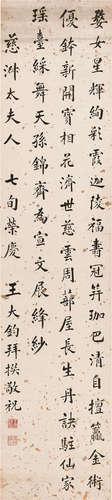 婺女星輝絢彩霞迦陵福壽冠笄珈巴清自擅籯金術
優鉢新開寶相花濟世慈雲周蔀屋長生丹訣駐仙家
瑤臺綵舞天孫錦齊為宣文展絳紗
慈淑太夫人七旬榮慶 王大鈞拜撰敬祝